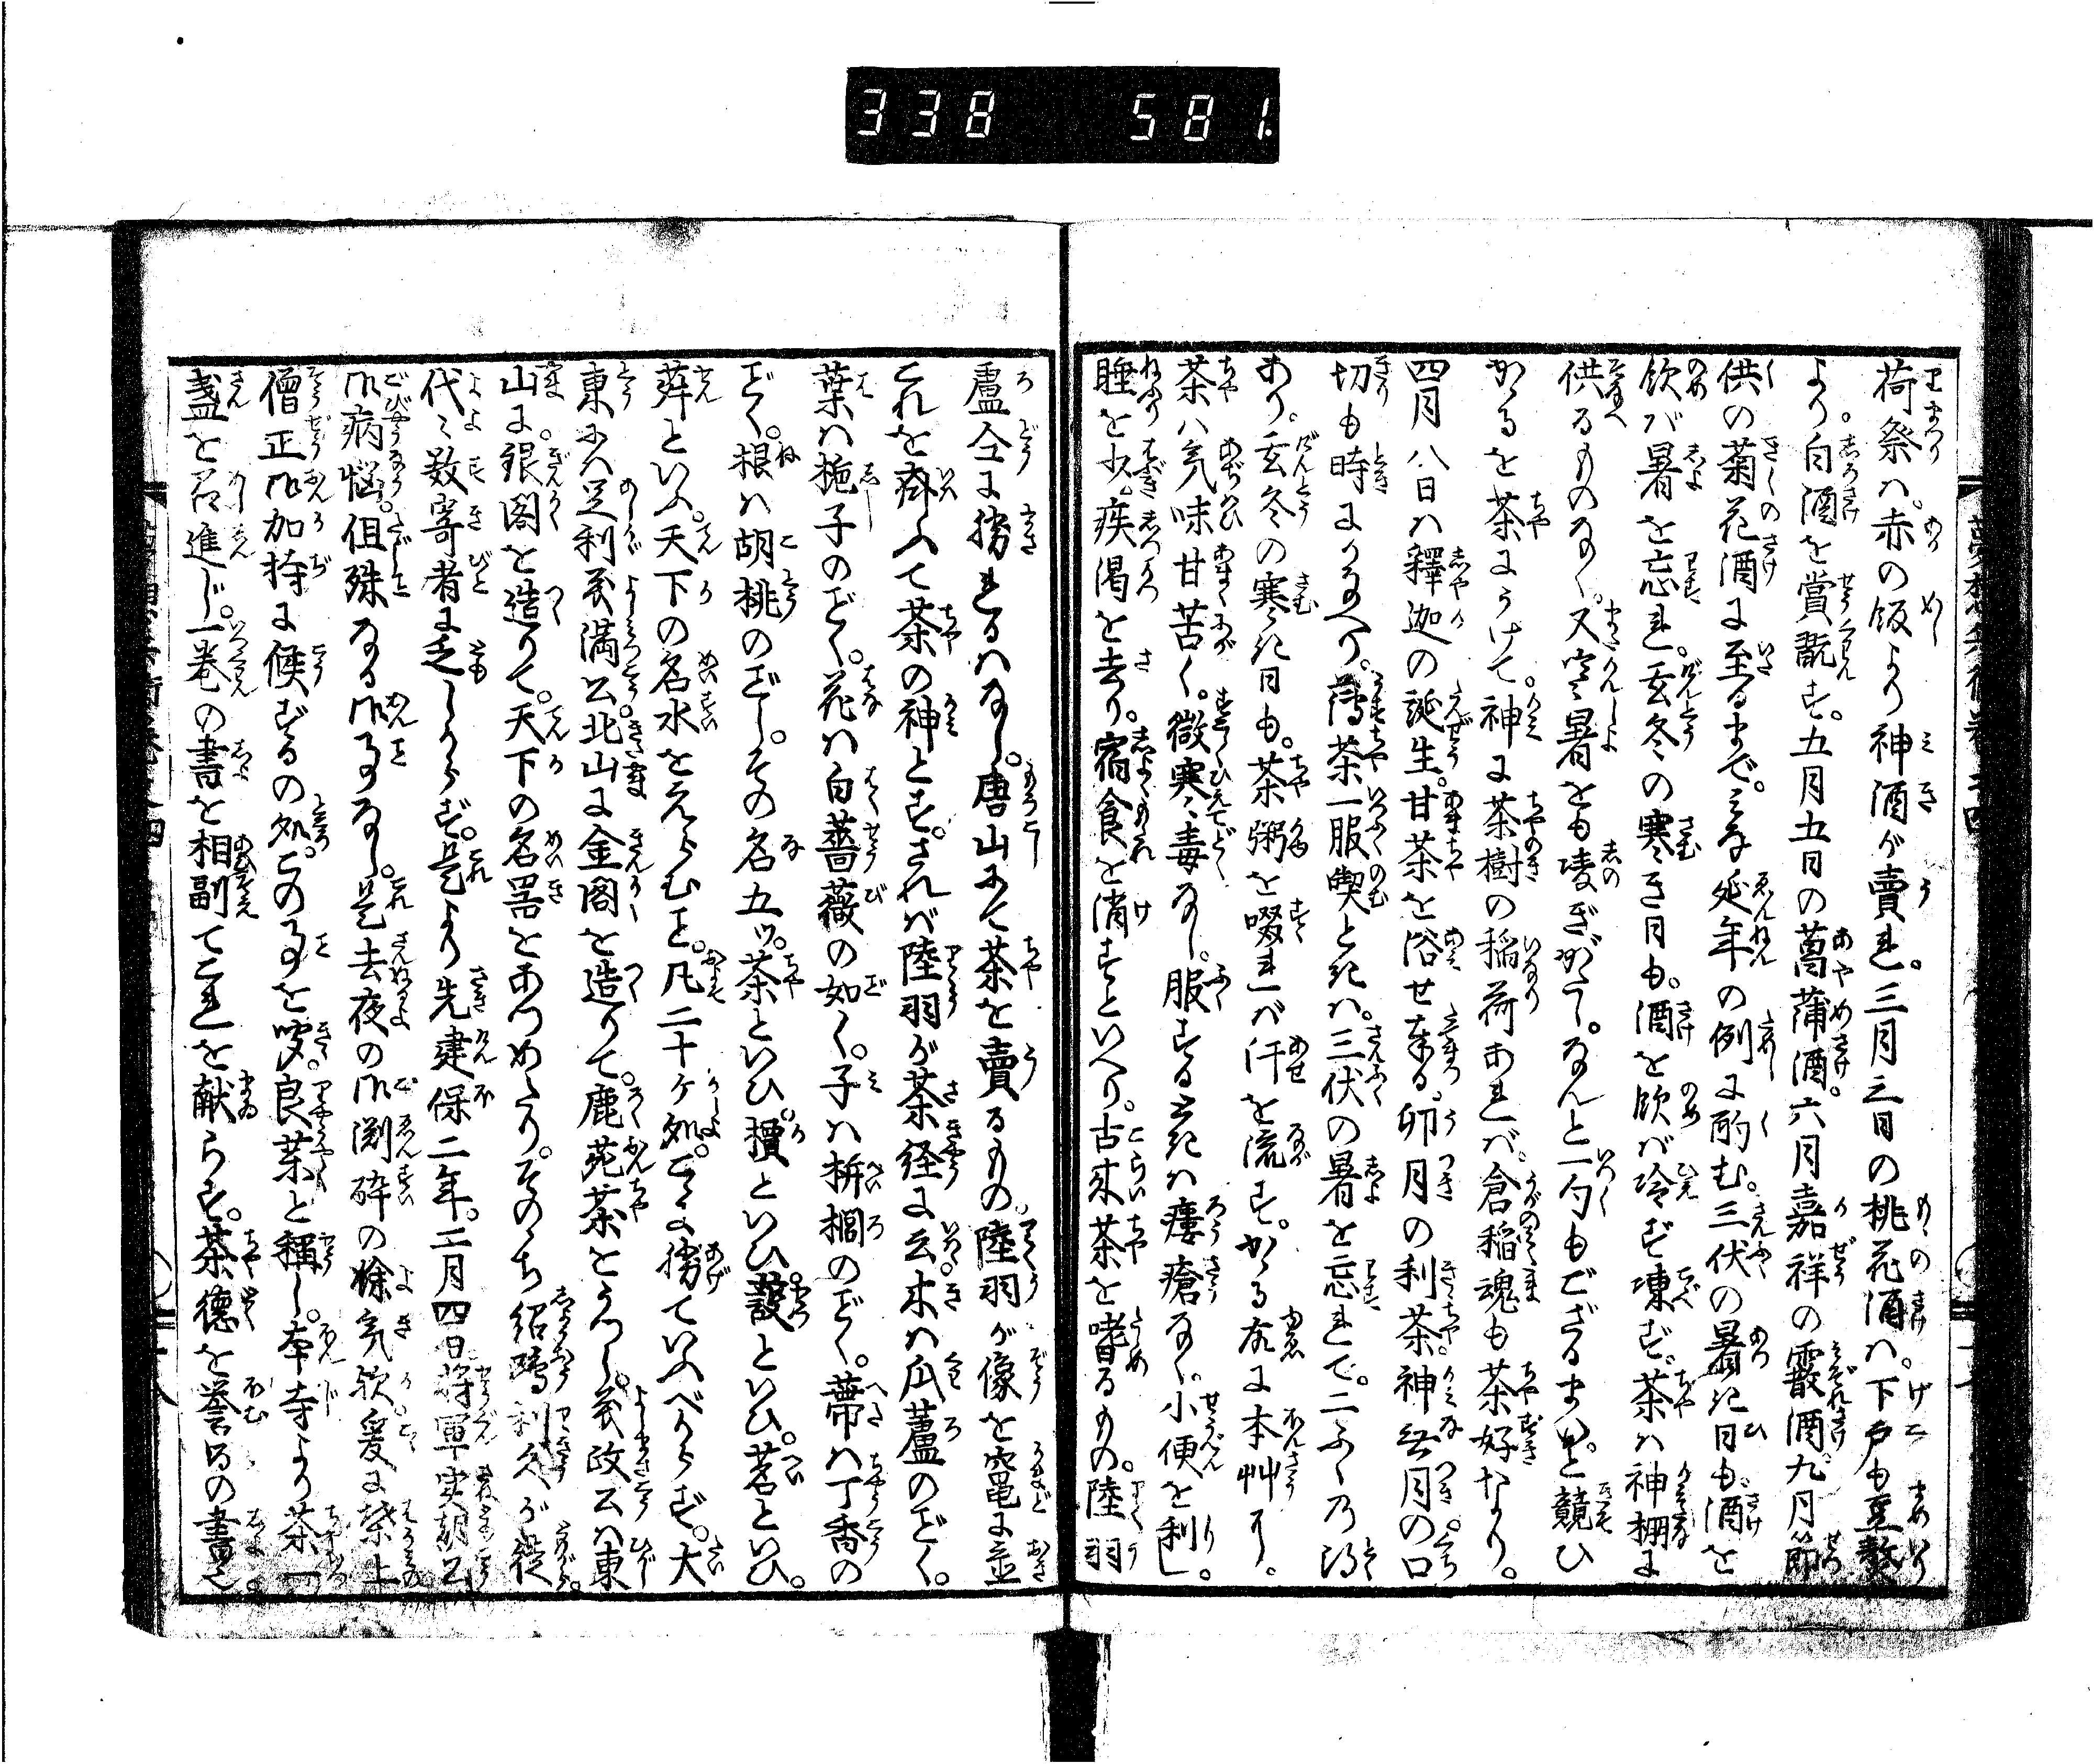 338 581.
荷祭は。赤の飯より神酒が賣れ。三月三日の桃花酒は。下戸も
より。白酒を賞翫す。五月五日の菖蒲酒。六月嘉祥の霰酒。九月節
供の菊花酒に至るまで。みな延年の例に酌む。三伏の暑き日も。酒を
飲ば暑を忘れ。玄冬の寒き日も。酒を飲ば冷ず凍ず。茶は神棚に
供るものなく。又寒暑をも凌ぎがたし。なんと一勺もござるまいと競ひ
かゝるを茶にうけて。神に茶樹の稲荷あれば。倉稲魂も茶好なり。
四月八日は釋迦の誕生。甘茶を浴せ奉る。卯月の利茶。神無月の口
切も時にかなへり。薄茶一服喫ときは。三伏の暑を忘れて。二ふくの
あり。玄冬の寒き日も。茶粥を啜れば汗を流す。かゝる故に本艸に。
茶は気味甘苦く。微寒毒なし。服するときは瘻瘡なく。小便を利し。
睡を少。疾渇を去り。宿食を消すといへり。古来茶を嗜るもの。陸羽
盧仝に勝れるはなし。唐山にて茶を賣るもの。陸羽が像を竈に並
これを齋ふて茶の神とす。されば陸羽が茶経に云。木は瓜蘆のごとく。
葉は梔子のごとく。花は白薔薇の如く。子は栟櫚のごとく。蒂は丁香の
ごとく。根は胡桃のごとし。その名五ツ。茶といひ。檟といひ。蔎といひ。茗といひ。
荈といふ。天下の名水をえらむと。凡二十ヶ処。こゝに勝ていふべからず。大
東には足利義満公北山に金閣を造りて。鹿苑茶をうつし。義政公は東
山に。銀閣を造りて。天下の名器をあつめたり。そのゝち紹鴎利久が徒。
代々数寄者に乏しからず。是より先建保二年。二月四日将軍実朝公
御病悩。但殊なる御事なし。是去夜の御渕酔の餘気歟爰に葉上
僧正御加持に候ずるの処。この事を聞。良薬と称し。本寺より茶一
盞を召進じ。一巻の書を相副てこれを献らる。茶徳を誉るの書也。